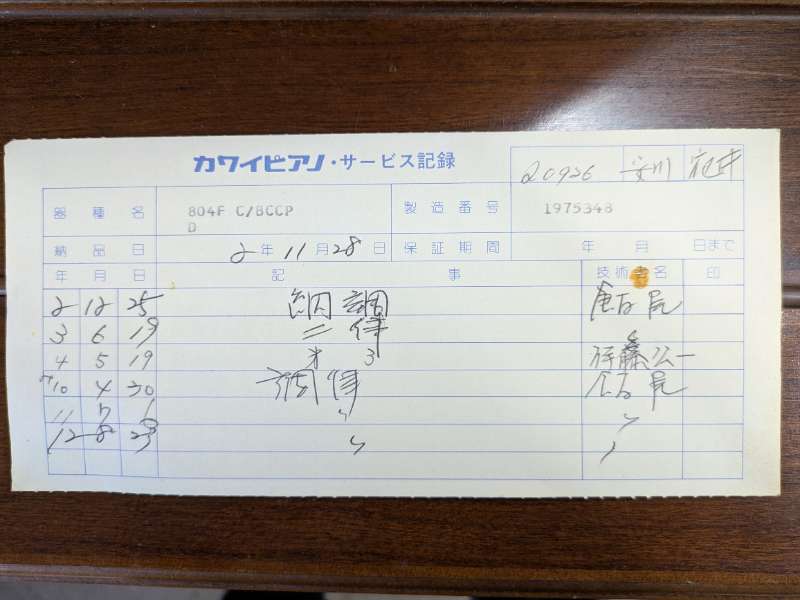 カワイピアノ・サービス記録
20926 安川
器種名 804F C/BCCP 製造番号 1975348
D
納品日 2年11月28日 保証期間 年 月 日まで
年 月 日 記 事 技術者名 印
2 12 25 調
3 6 19 二 律
4 5 19 オ 3 公一
10 4 30 調律
11 7 〃 〃
12 8 23 〃 〃